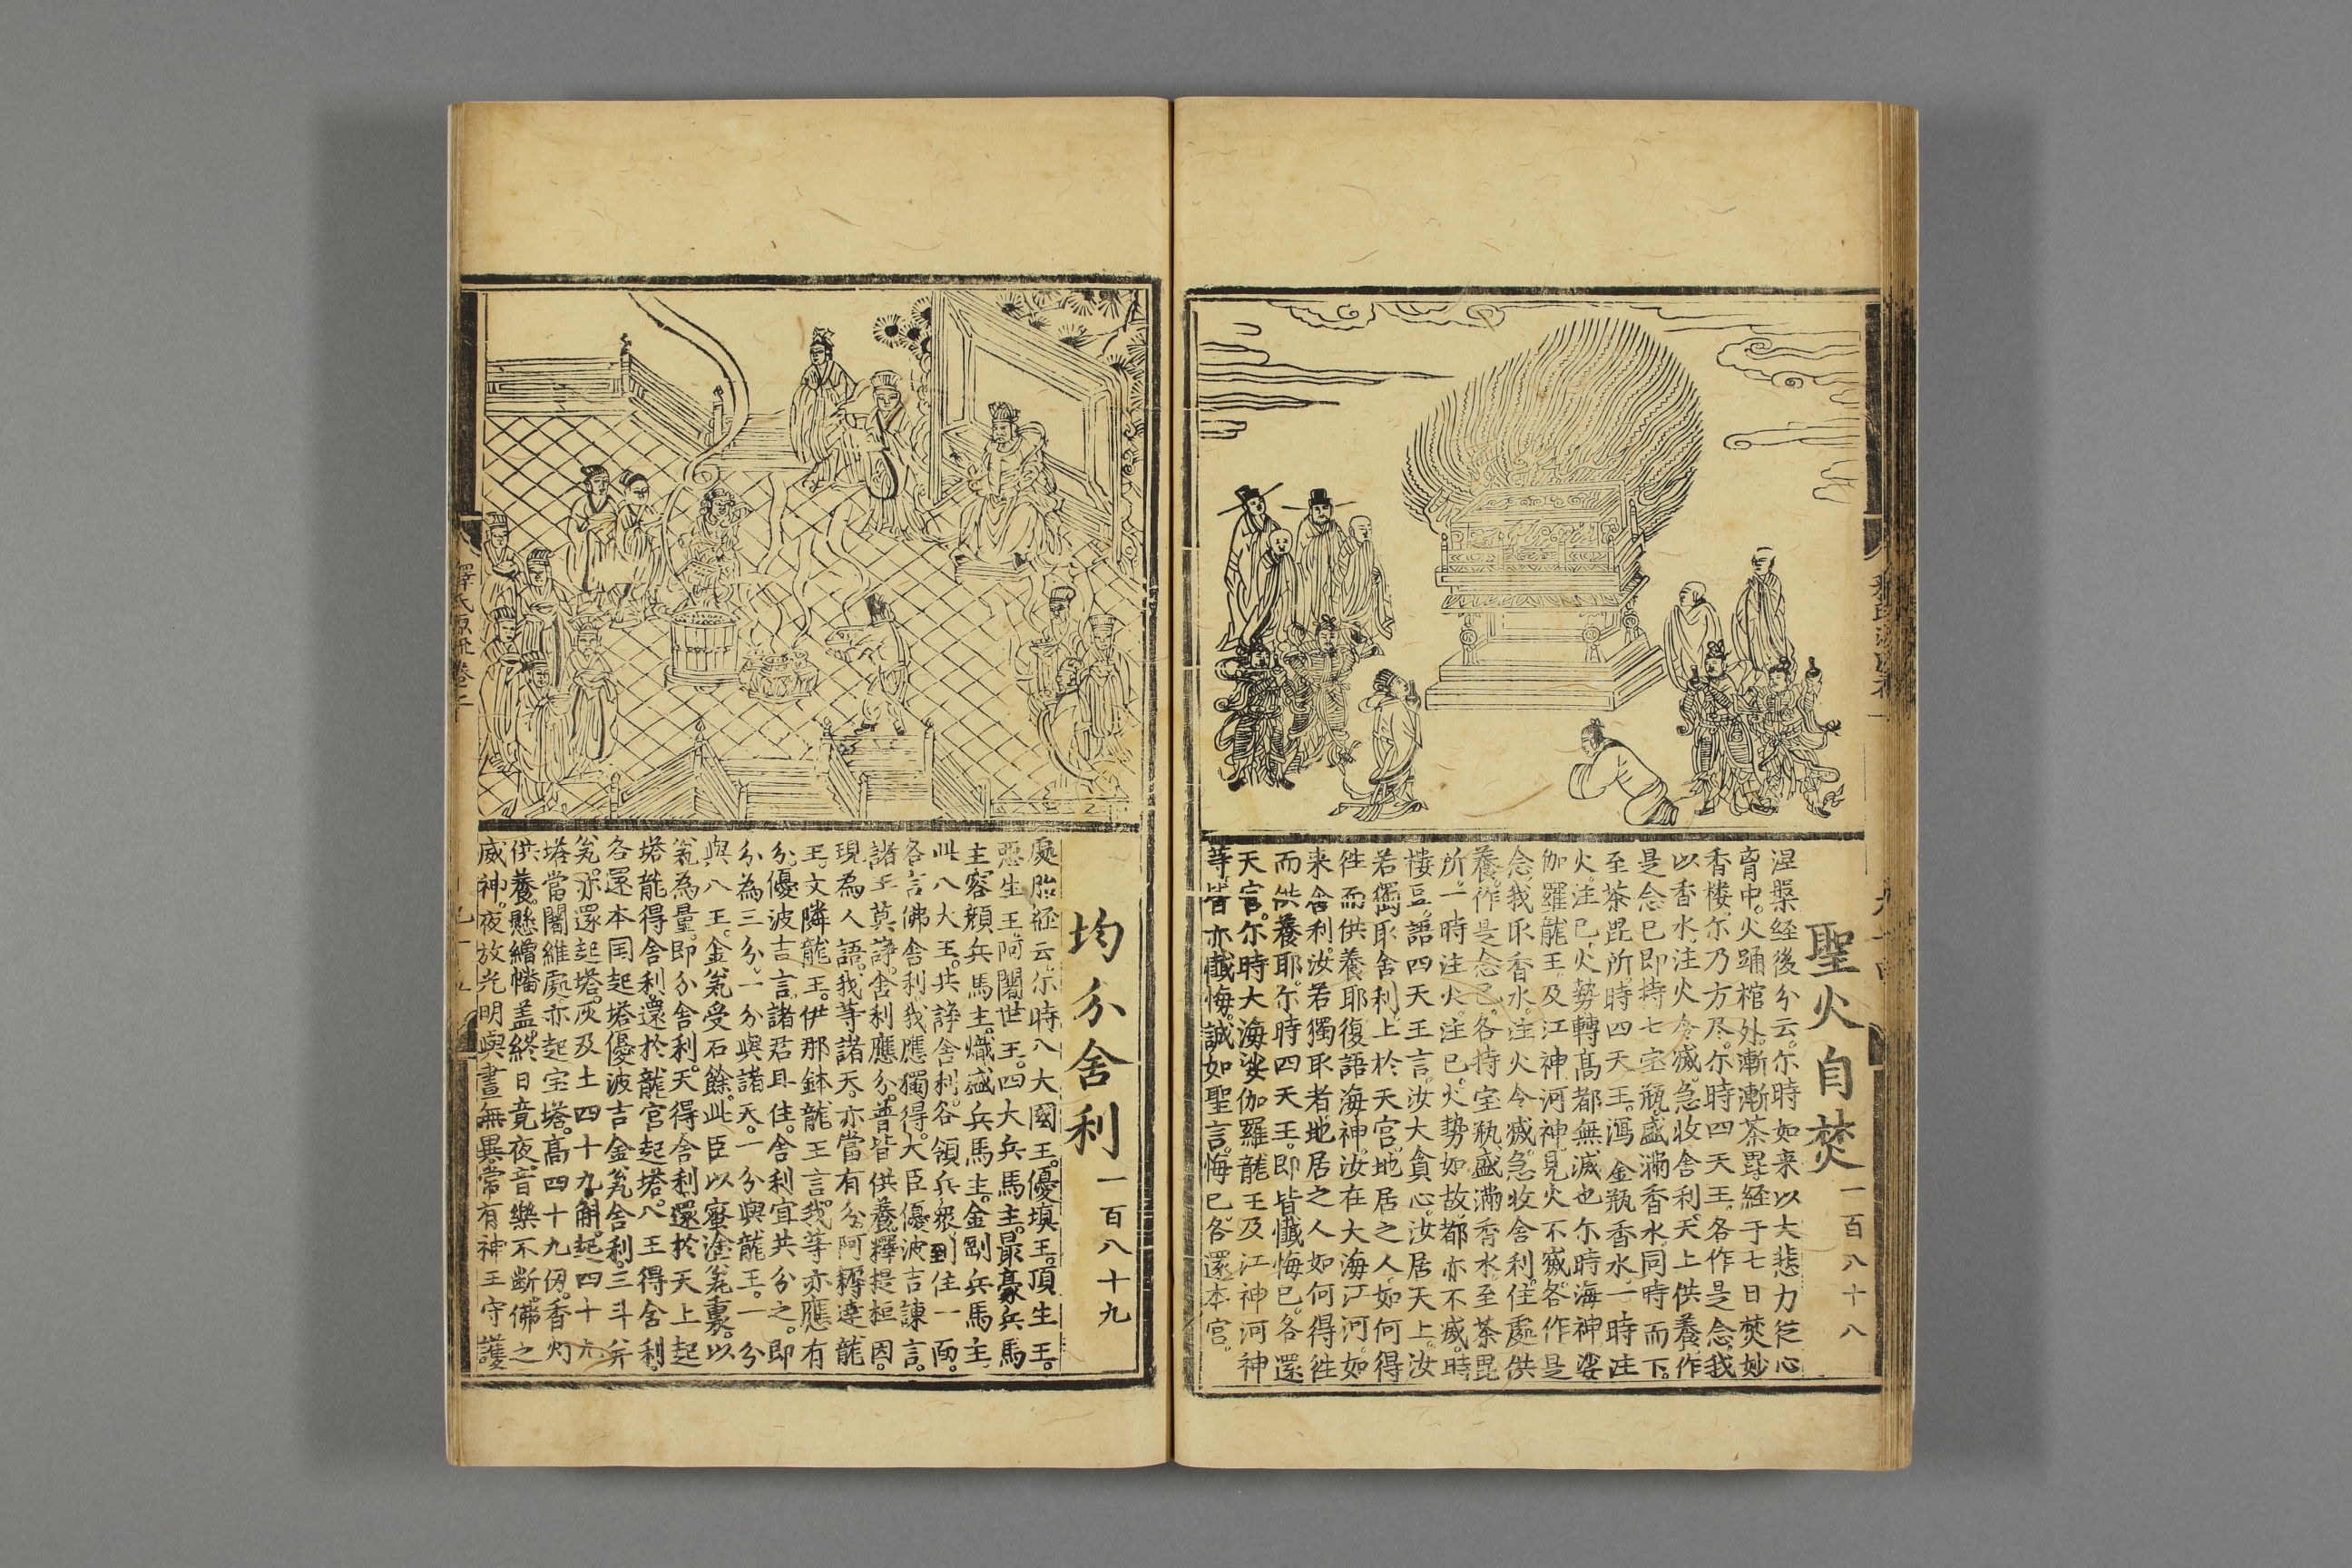 聖火自焚 一百八十八
涅槃経後分云尔時如来以大悲力従心
胷中火踊棺外漸漸荼毘経于七日焚妙
香楼尔乃方尽尔時四天王各作是念我
以香水注火令滅急收舍利天上供養作
是念已即持七宝瓶盛滿香水同時而下
至荼毘所時四天王瀉金瓶香水一時注
火注已火勢轉髙都無滅也尔時海神娑
伽羅龍王及江神河神見火不滅各作是
念我取香水注火令滅急收舍利住處供
養作是念已各持宝瓶盛滿香水至荼毘
所一時注火注已火勢如故都亦不滅時
楼豆語四天王言汝大貪心汝居天上汝
若獨取舍利上於天宫地居之人如何得
徃而供養耶復語海神汝在大海江河如
来舍利汝若獨取者地居之人如何得徃
而供養耶尔時四天王即皆懺悔已各還
天宫尔時大海娑伽羅龍王及江神河神
等皆亦懺悔誠如聖言悔已各還本宫
均分舍利 一百八十九
處胎経云尔時八大國王優填王頂生王
惡生王阿闍世王四大兵馬主最豪兵馬
主容顔兵馬主熾盛兵馬主金剛兵馬主
此八大王共諍舍利各領兵衆到住一面
各言佛舍利我應獨得大臣優波吉諫言
諸王莫諍舍利應分普皆供養釋提桓因
現為人語我等諸天亦當有分阿耨達龍
王文隣龍王伊那鉢龍王言我等亦應有
分優波吉言諸君且住舍利宜共分之即
分為三分一分與諸天一分與龍王一分
與八王金瓮受石餘此臣以蜜塗瓮裏以
瓮為量即分舍利天得舍利還於天上起
塔龍得舍利還於龍宫起塔八王得舍利
各還本囯起塔優波吉金瓮舍利三斗并
瓮亦還起塔灰及土四十九斛起四十九
塔當闍維處亦起宝塔髙四十九仞香灯
供養懸繒幡盖終日竟夜音樂不断佛之
威神夜放光明與晝無異常有神王守護
釋氏源流卷上